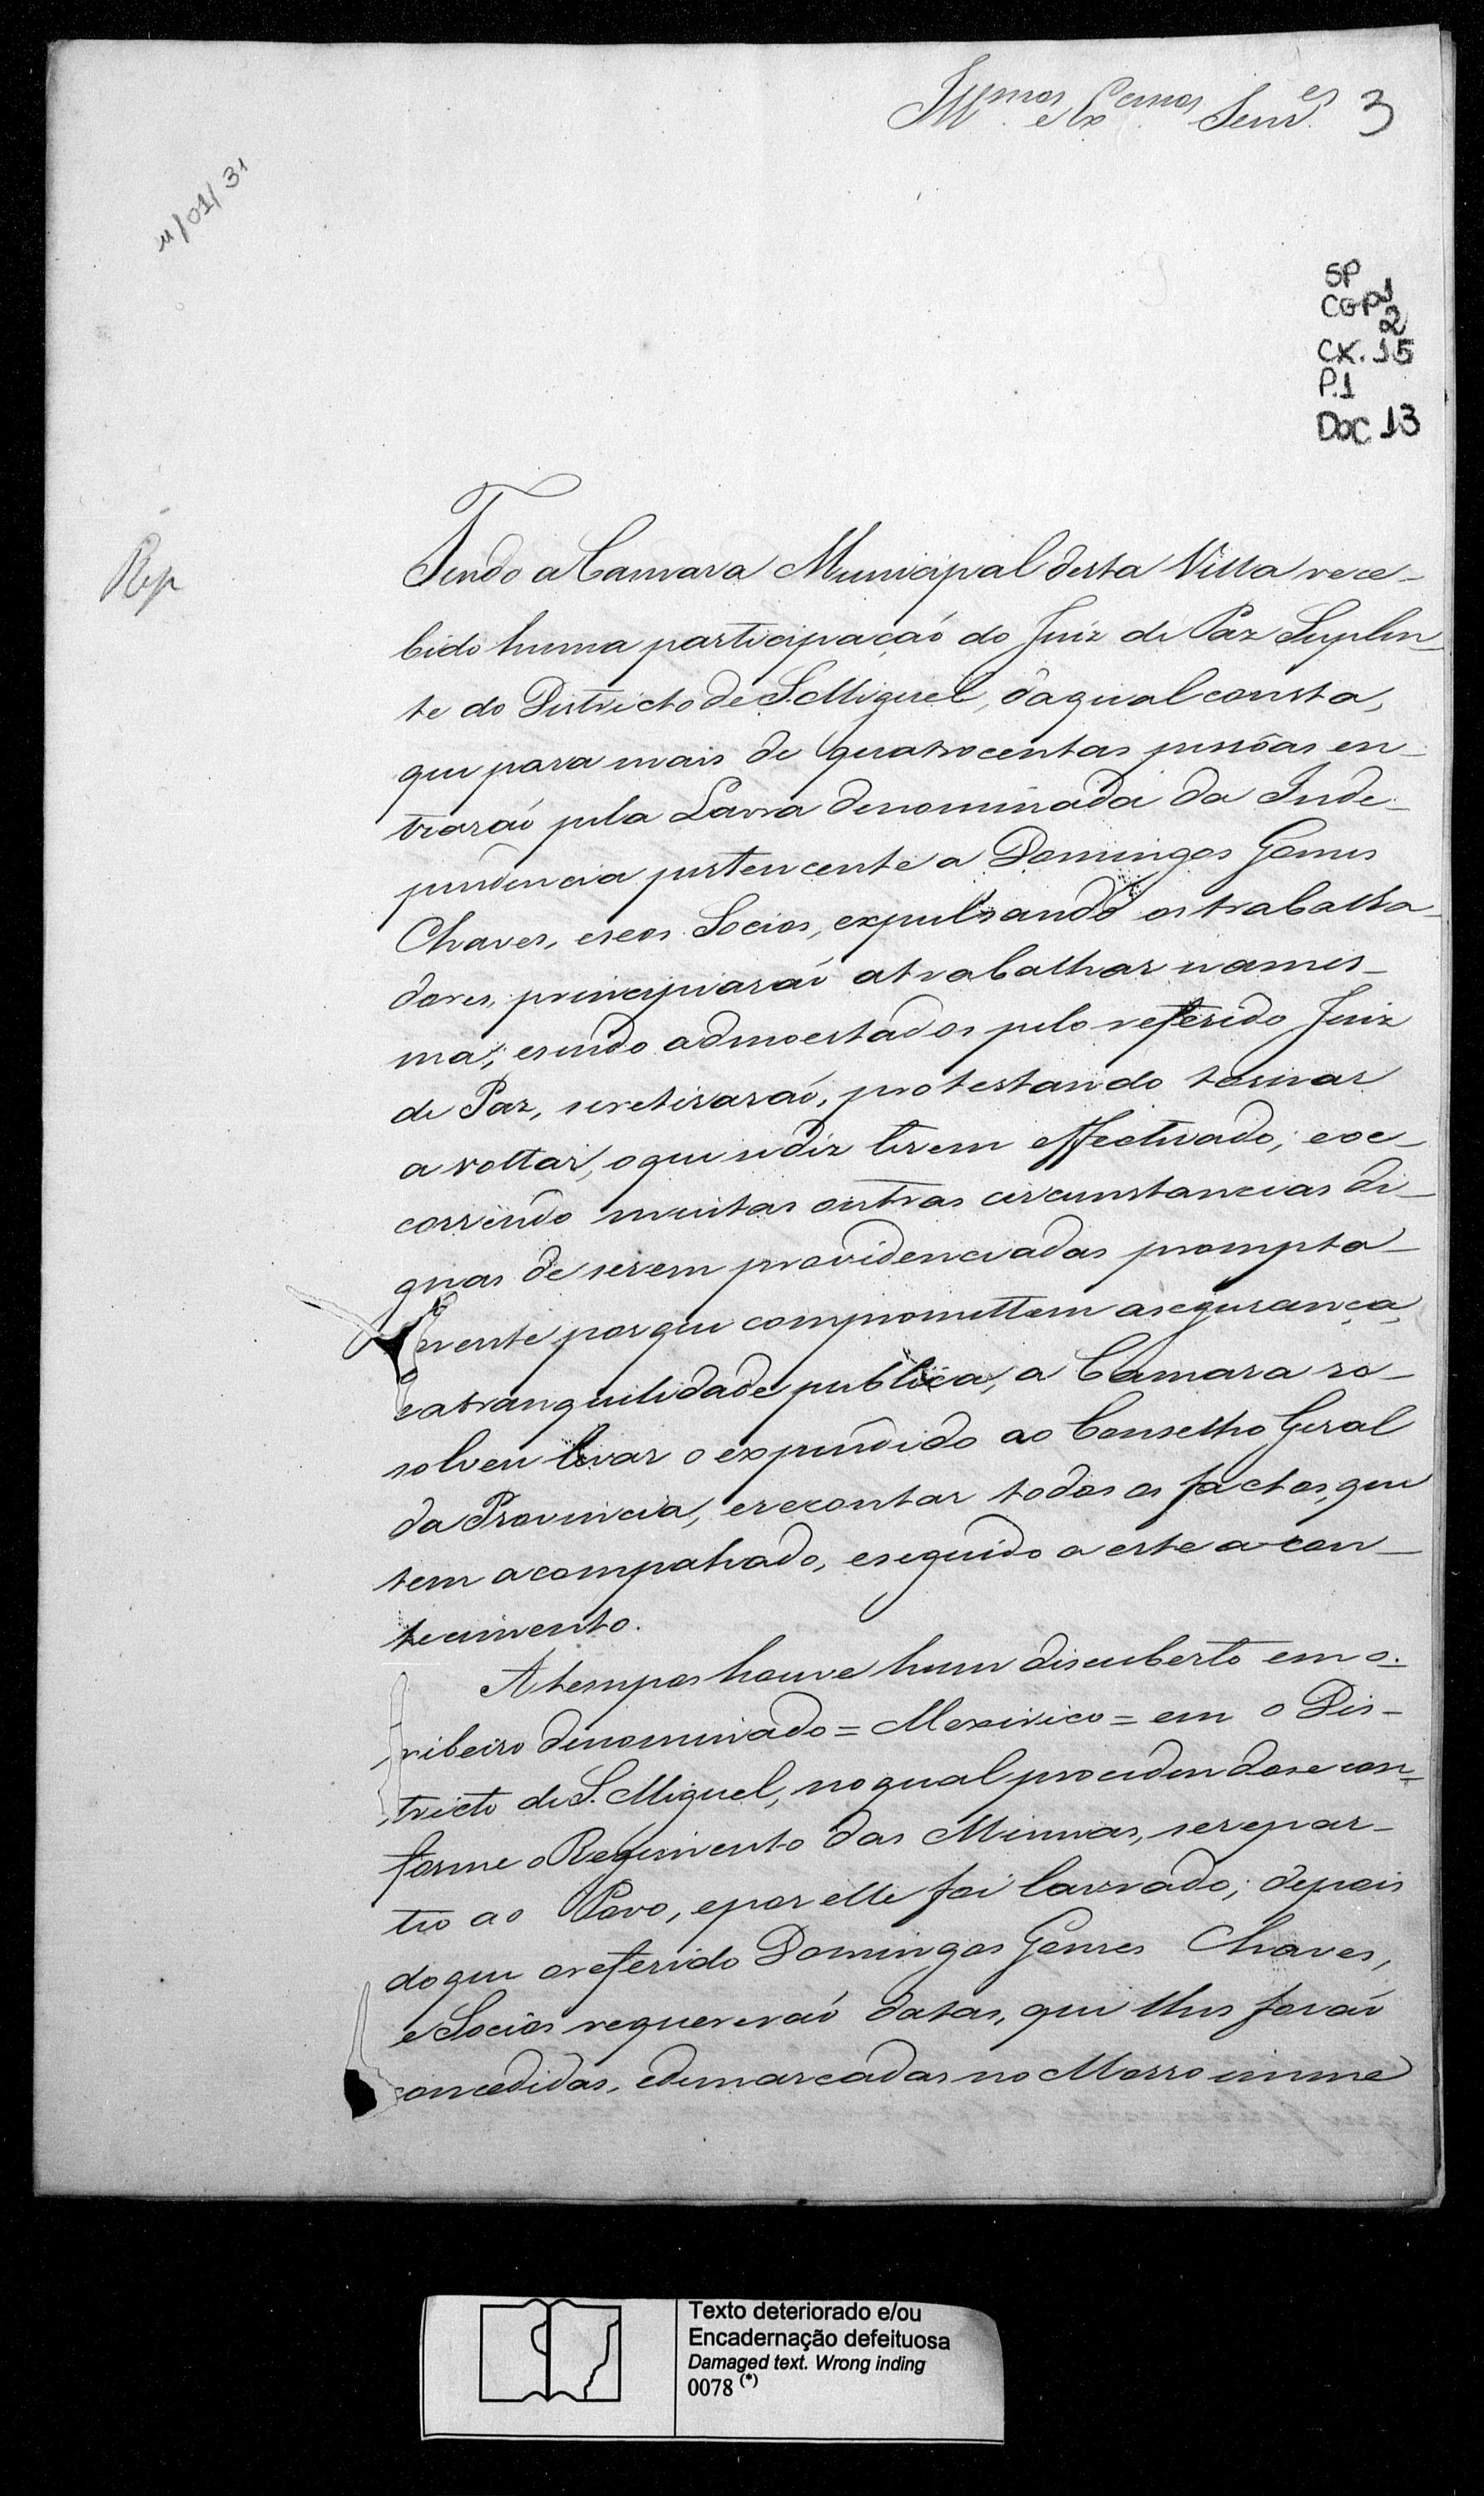 Illmos e Excemos Senres 3
11/01/31
SP
CGP1
2
CX. 15
P.1
DOC 13
Rep
Tendo a Camara Municipal desta Villa rece-
bido huma participação do Juiz de Paz Suplen-
te do Districto de S. Miguel, da qual consta,
que para mais de quatrocentas pessôas en-
traraó pela Lavra denominada da Inde-
pendencia pertencente a Domingos Gomes
Chaves, e seos Socios, expulsando os trabalha-
dores, principiaraó a trabalhar na mes-
ma; e sendo admoestados pelo referido Juiz
de Paz, se retiraraó, protestando tornar
a voltar, o que se diz terem effectuado; e oc-
correndo muitas outras circunstancias di-
gnas de serem providenciadas prompta-
mente porque compromettem a segurança,
e a tranquilidade publica, a Camara re-
solveu levar o expendido ao Conselho Geral
da Provincia, e recontar todos os factos, que
tem acompahado, e seguido a este a con-
tecimento.
A tempos houve hum discuberto em o
ribeiro denominado = Mexirico = em o Dis-
tricto de S. Miguel, no qual procedendose con-
forme o Regimento das Minnas, se repar-
tio ao Povo, e por elle foi lavrado; depois
do que o referido Domingos Gomes Chaves,
e Socios requereraó datas, que lhes foraó
concedidas, e demarcadas no Morro imme
Texto deteriorado e/ou
Encadernação defeituosa
Damaged text. Wrong inding
0078 (*)